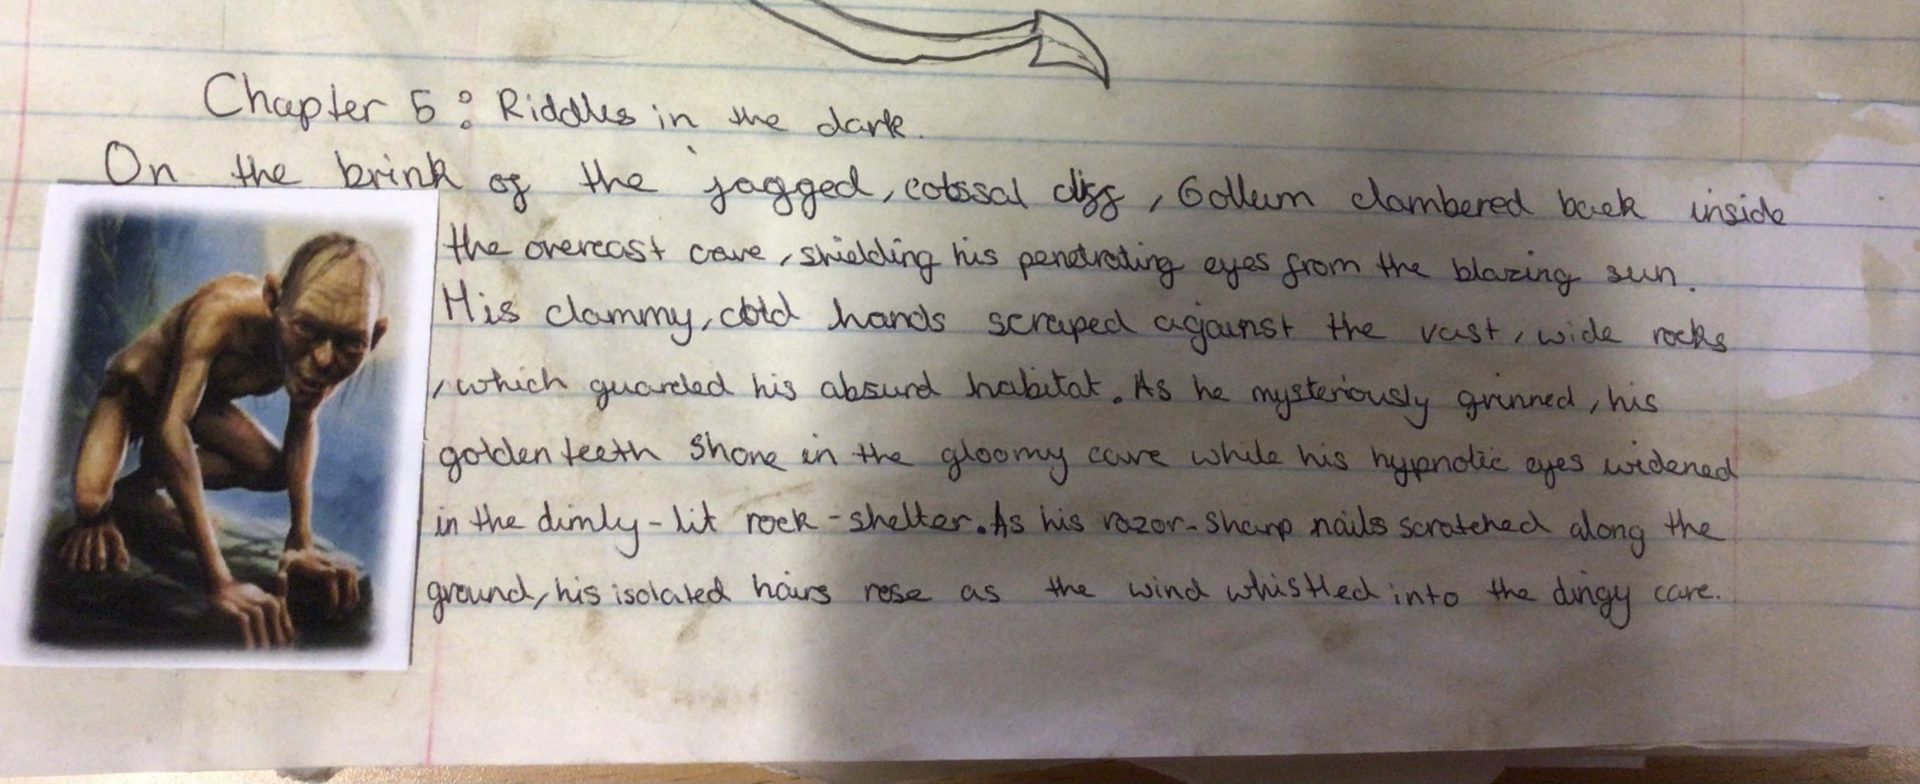 Chapter 5: Riddles in the dark.
On the brink of the jagged, colossal cliff, Gollum clambered back inside
the overcast cave, shielding his penetrating eyes from the blazing sun.
His clammy, cold hands scraped against the vast, wide rocks
, which guarded his absurd habitat. As he mysteriously grinned, his
golden teeth shone in the gloomy cave while his hypnotic eyes widened
in the dimly-lit rock-shelter. As his razor-sharp nails scratched along the
ground, his isolated hairs rose as the wind whistled into the dingy cave.